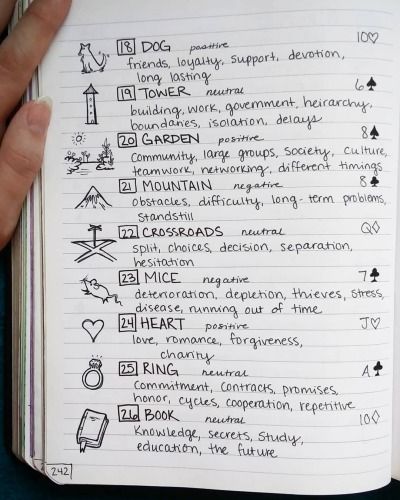 18 DOG positive 10♡
friends, loyalty, support, devotion,
long lasting
19 TOWER neutral 6♠
building, work, government, heirarchy,
boundaries, isolation, delays
20 GARDEN positive 8♠
Community, large groups, society, culture,
teamwork, networking, different timings
21 MOUNTAIN negative 8♣
obstacles, difficulty, long-term problems,
standstill
22 CROSSROADS neutral Q♢
split, choices, decision, separation,
hesitation
23 MICE negative 7♣
deterioration, depletion, thieves, stress,
disease, running out of time
24 HEART positive J♡
love, romance, forgiveness,
charity
25 RING neutral A♣
Commitment, contracts, promises,
honor, cycles, cooperation, repetitive
26 BOOK neutral 10♢
Knowledge, secrets, study,
education, the future
242